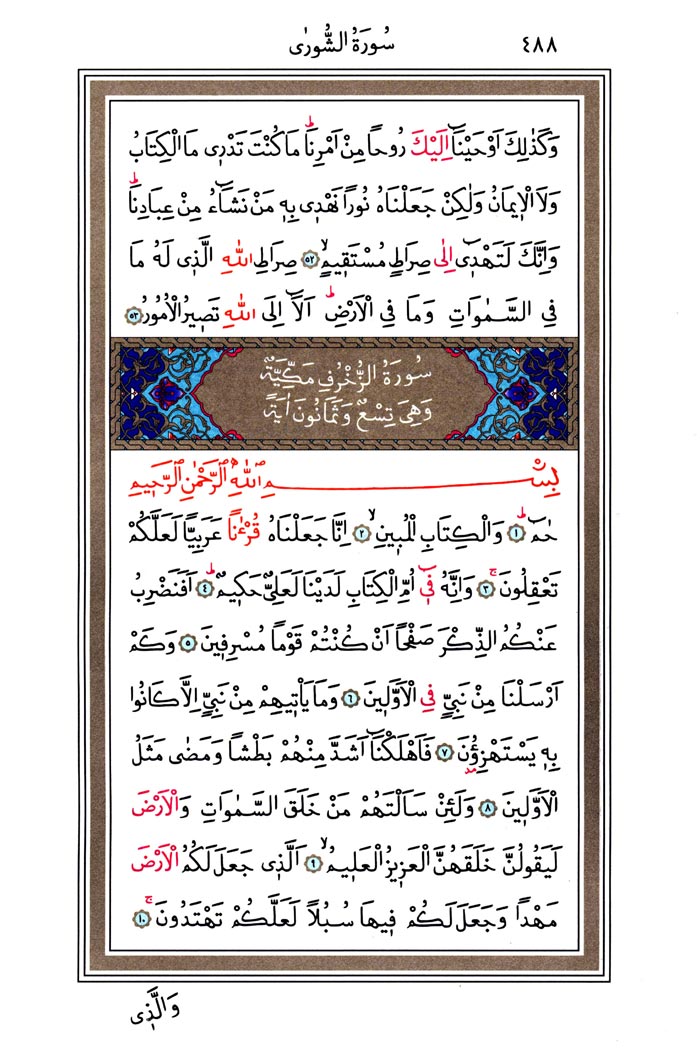 سُورَةُ الشُّورٰى ٤٨٨
وَكَذٰلِكَ اَوْحَيْنَٓا اِلَيْكَ رُوحاً مِنْ اَمْرِنَاۜ مَا كُنْتَ تَدْرٖى مَا الْكِتَابُ
وَلَا الْاٖيمَانُ وَلٰكِنْ جَعَلْنَاهُ نُوراً نَهْدٖى بِهٖ مَنْ نَشَٓاءُ مِنْ عِبَادِنَاۜ
وَاِنَّكَ لَتَهْدٖٓى اِلٰى صِرَاطٍ مُسْتَقٖيمٍۙ ٥٢ صِرَاطِ اللّٰهِ الَّذٖى لَهُ مَا
فِى السَّمٰوَاتِ وَمَا فِى الْاَرْضِۜ اَلَٓا اِلَى اللّٰهِ تَصٖيرُ الْاُمُورُ ٥٣
سُورَةُ الزُّخْرُفِ مَكِّيَّةٌ
وَهِىَ تِسْعٌ وَثَمَانُونَ اٰيَةً
بِسْمِ اللّٰهِ الرَّحْمٰنِ الرَّحٖيمِ
حٰمٓۜ ١ وَالْكِتَابِ الْمُبٖينِۙ ٢ اِنَّا جَعَلْنَاهُ قُرْءٰناً عَرَبِيًّا لَعَلَّكُمْ
تَعْقِلُونَۚ ٣ وَاِنَّهُ فٖٓى اُمِّ الْكِتَابِ لَدَيْنَا لَعَلِىٌّ حَكٖيمٌۜ ٤ اَفَنَضْرِبُ
عَنْكُمُ الذِّكْرَ صَفْحاً اَنْ كُنْتُمْ قَوْماً مُسْرِفٖينَ ٥ وَكَمْ
اَرْسَلْنَا مِنْ نَبِىٍّ فِى الْاَوَّلٖينَ ٦ وَمَا يَاْتٖيهِمْ مِنْ نَبِىٍّ اِلَّا كَانُوا
بِهٖ يَسْتَهْزِؤُ۫نَ ٧ فَاَهْلَكْنَٓا اَشَدَّ مِنْهُمْ بَطْشاً وَمَضٰى مَثَلُ
الْاَوَّلٖينَ ٨ وَلَئِنْ سَاَلْتَهُمْ مَنْ خَلَقَ السَّمٰوَاتِ وَالْاَرْضَ
لَيَقُولُنَّ خَلَقَهُنَّ الْعَزٖيزُ الْعَلٖيمُۙ ٩ اَلَّذٖى جَعَلَ لَكُمُ الْاَرْضَ
مَهْداً وَجَعَلَ لَكُمْ فٖيهَا سُبُلاً لَعَلَّكُمْ تَهْتَدُونَۚ ١٠
وَالَّذٖى